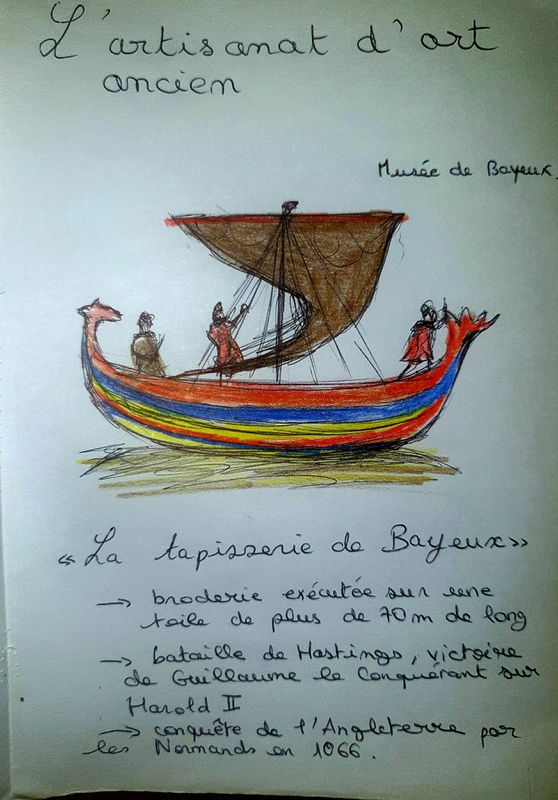 L'artisanat d'art
ancien
Musée de Bayeux.
« La tapisserie de Bayeux »
→ broderie exécutée sur une
toile de plus de 70 m de long
→ bataille de Hastings, victoire
de Guillaume le Conquérant sur
Harold II
→ conquête de l'Angleterre par
les Normands en 1066.